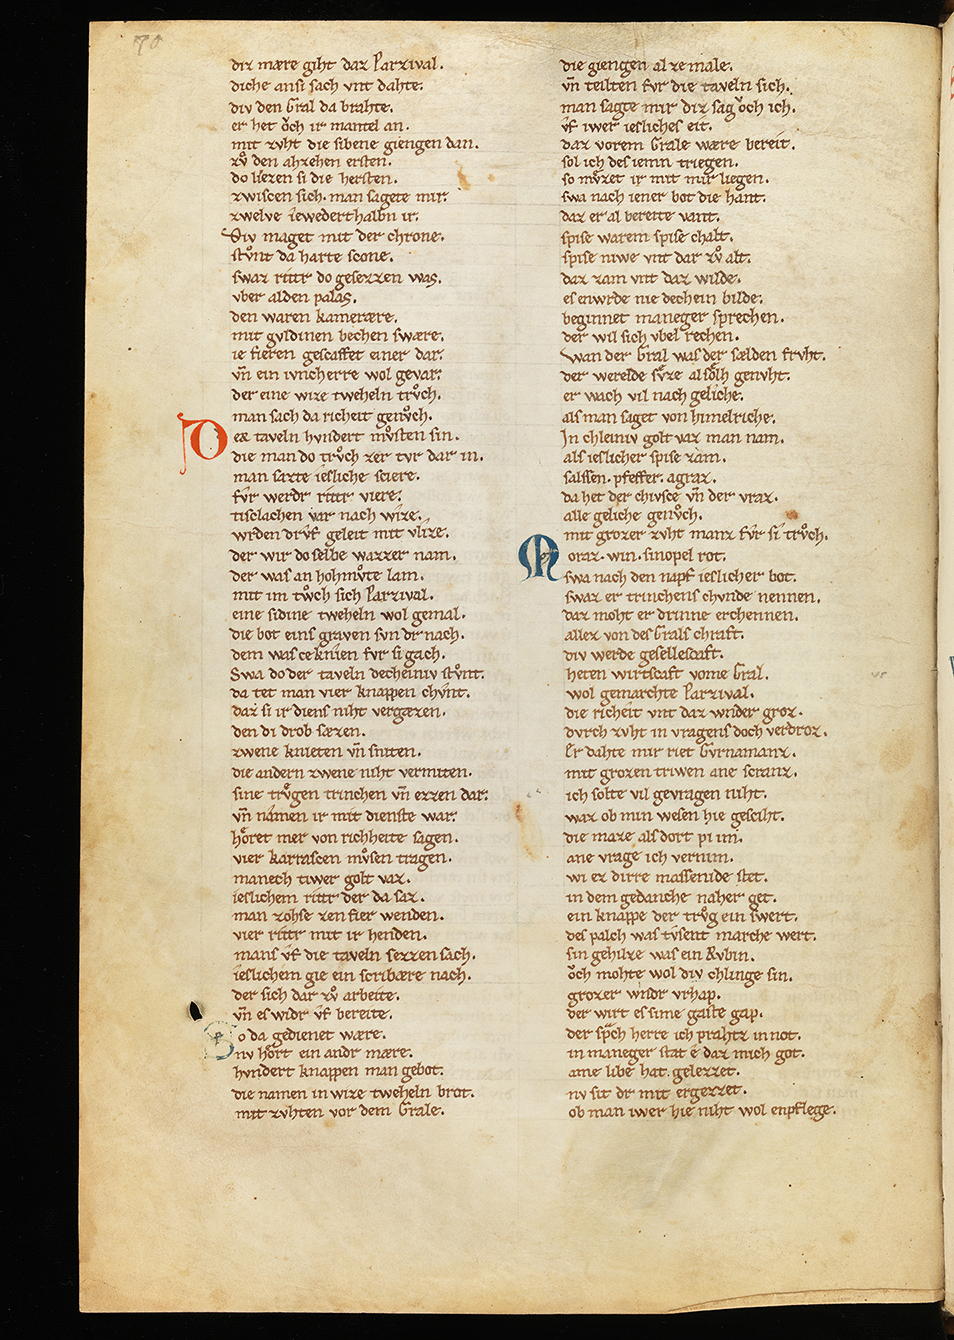 70
diz mære giht daz Parzival.
diche ansi sach vnt dahte.
div den Gral da brahte.
er het oͮch ir mantel an.
mit zvht die sibene giengen dan.
zvͦ den ahzehen ersten.
do liezen si die hersten.
zwiscen sich. man sagete mir.
zwelve iewederthalbn ir.
Div maget mit der chrone.
stvͦnt da harte scone.
swaz rittr do gesezzen was.
vber alden palas.
den waren kameræære.
mit gvldinen bechen swære.
ie fieren gescaffet einer dar.
vn̄ ein ivncherre wol gevar.
der eine wize tweheln trvͦch.
man sach da richeit genvͦch.
Der taveln hvndert mvͦsten sin.
die man do trvͦch zer tvr dar in.
man sazte iesliche sciere.
fvr werdr rittr viere.
tisclachen var nach wize.
wrden drvf geleit mit vlize.
der wir do selbe wazzer nam.
der was an hohmvͦte lam.
mit im twͦch sich Parzival.
eine sidine tweheln wol gemal.
die bot eins graven svn dr nach.
dem was ce knien fvr si gach.
Swa do der taveln decheiniv stvͦnt.
da tet man vier knappen chvnt.
daz si ir diens niht vergæzen.
den di drob sæzen.
zwene knieten vn̄ sniten.
die andern zwene niht vermiten.
sine trvͦgen trinchen vn̄ ezzen dar.
vn̄ namen ir mit dienste war.
hoͤret mer von richheite sagen.
vier karrascen mvͦsen tragen.
manech tiwer golt vaz.
ieslichem rittr der da saz.
man zohse zen fier wenden.
vier rittr mit ir henden.
mans vf die taveln sezzen sach.
ieslichem gie ein scribære nach.
der sich dar zvͦ arbeite.
vn̄ es widr vf bereite.
So da gedienet wære.
nv hoͤrt ein andr mære.
hvndert knappen man gebot.
die namen in wize tweheln brot.
mit zvhten vor dem Grale.
die giengen al ze male.
vn̄ teilten fvr die taveln sich.
man sagte mir diz sag oͮch ich.
vf iwer iesliches eit.
daz vorem Grale wære bereit.
sol ich des iemn triegen.
so mvͤzet ir mit mir liegen.
swa nach iener bot die hant.
daz er al bereite vant.
spise warem spise chalt.
spise niwe vnt dar zvͦ alt.
daz zam vnt daz wilde.
es enwrde nie dechein bilde.
beginnet maneger sprechen.
der wil sich vbel rechen.
wan der Gral was der sælden frvht.
der werelde svͤze al soͤlh genvht.
er wach vil nach geliche.
als man saget von himelriche.
In chleiniv golt vaz man nam.
als ieslicher spise zam.
salssen. pfeffer. agraz.
da het der chivsce vn̄ der vraz.
alle geliche genvͦch.
mit grozer zvht manz fvr si trvͦch.
Moraz. win. sinopel rot.
swa nach den napf ieslicher bot.
swaz er trinchens chvnde nennen.
daz moht er drinne erchennen.
allez von des Grals chraft.
div werde gesellescaft.
heten wirtscaft vome Gral.
wol gemarchte Parzival.
die richeit vnt daz wnder groz.
dvrch zvht in vragens doch verdroz.
Er dahte mir riet Gvrnamanz.
mit grozen triwen ane scranz.
ich solte vil gevragen niht.
waz ob min wesen hie gesciht.
die maze als dort pi im.
ane vrage ich vernim.
wi ez dirre massenide stet.
in dem gedanche naher get.
ein knappe der trvͦg ein swert.
des palch was tvsent marche wert.
sin gehilze was ein Rvbin.
oͮch mohte wol div chlinge sin.
grozer wndr vrhap.
der wirt es sime gaste gap.
der sp͛ch herre ich prahtz in not.
in maneger stat e daz mich got.
ame libe hat gelezzet.
nv sit dr mit ergezzet.
ob man iwer hie niht wol enpflege.